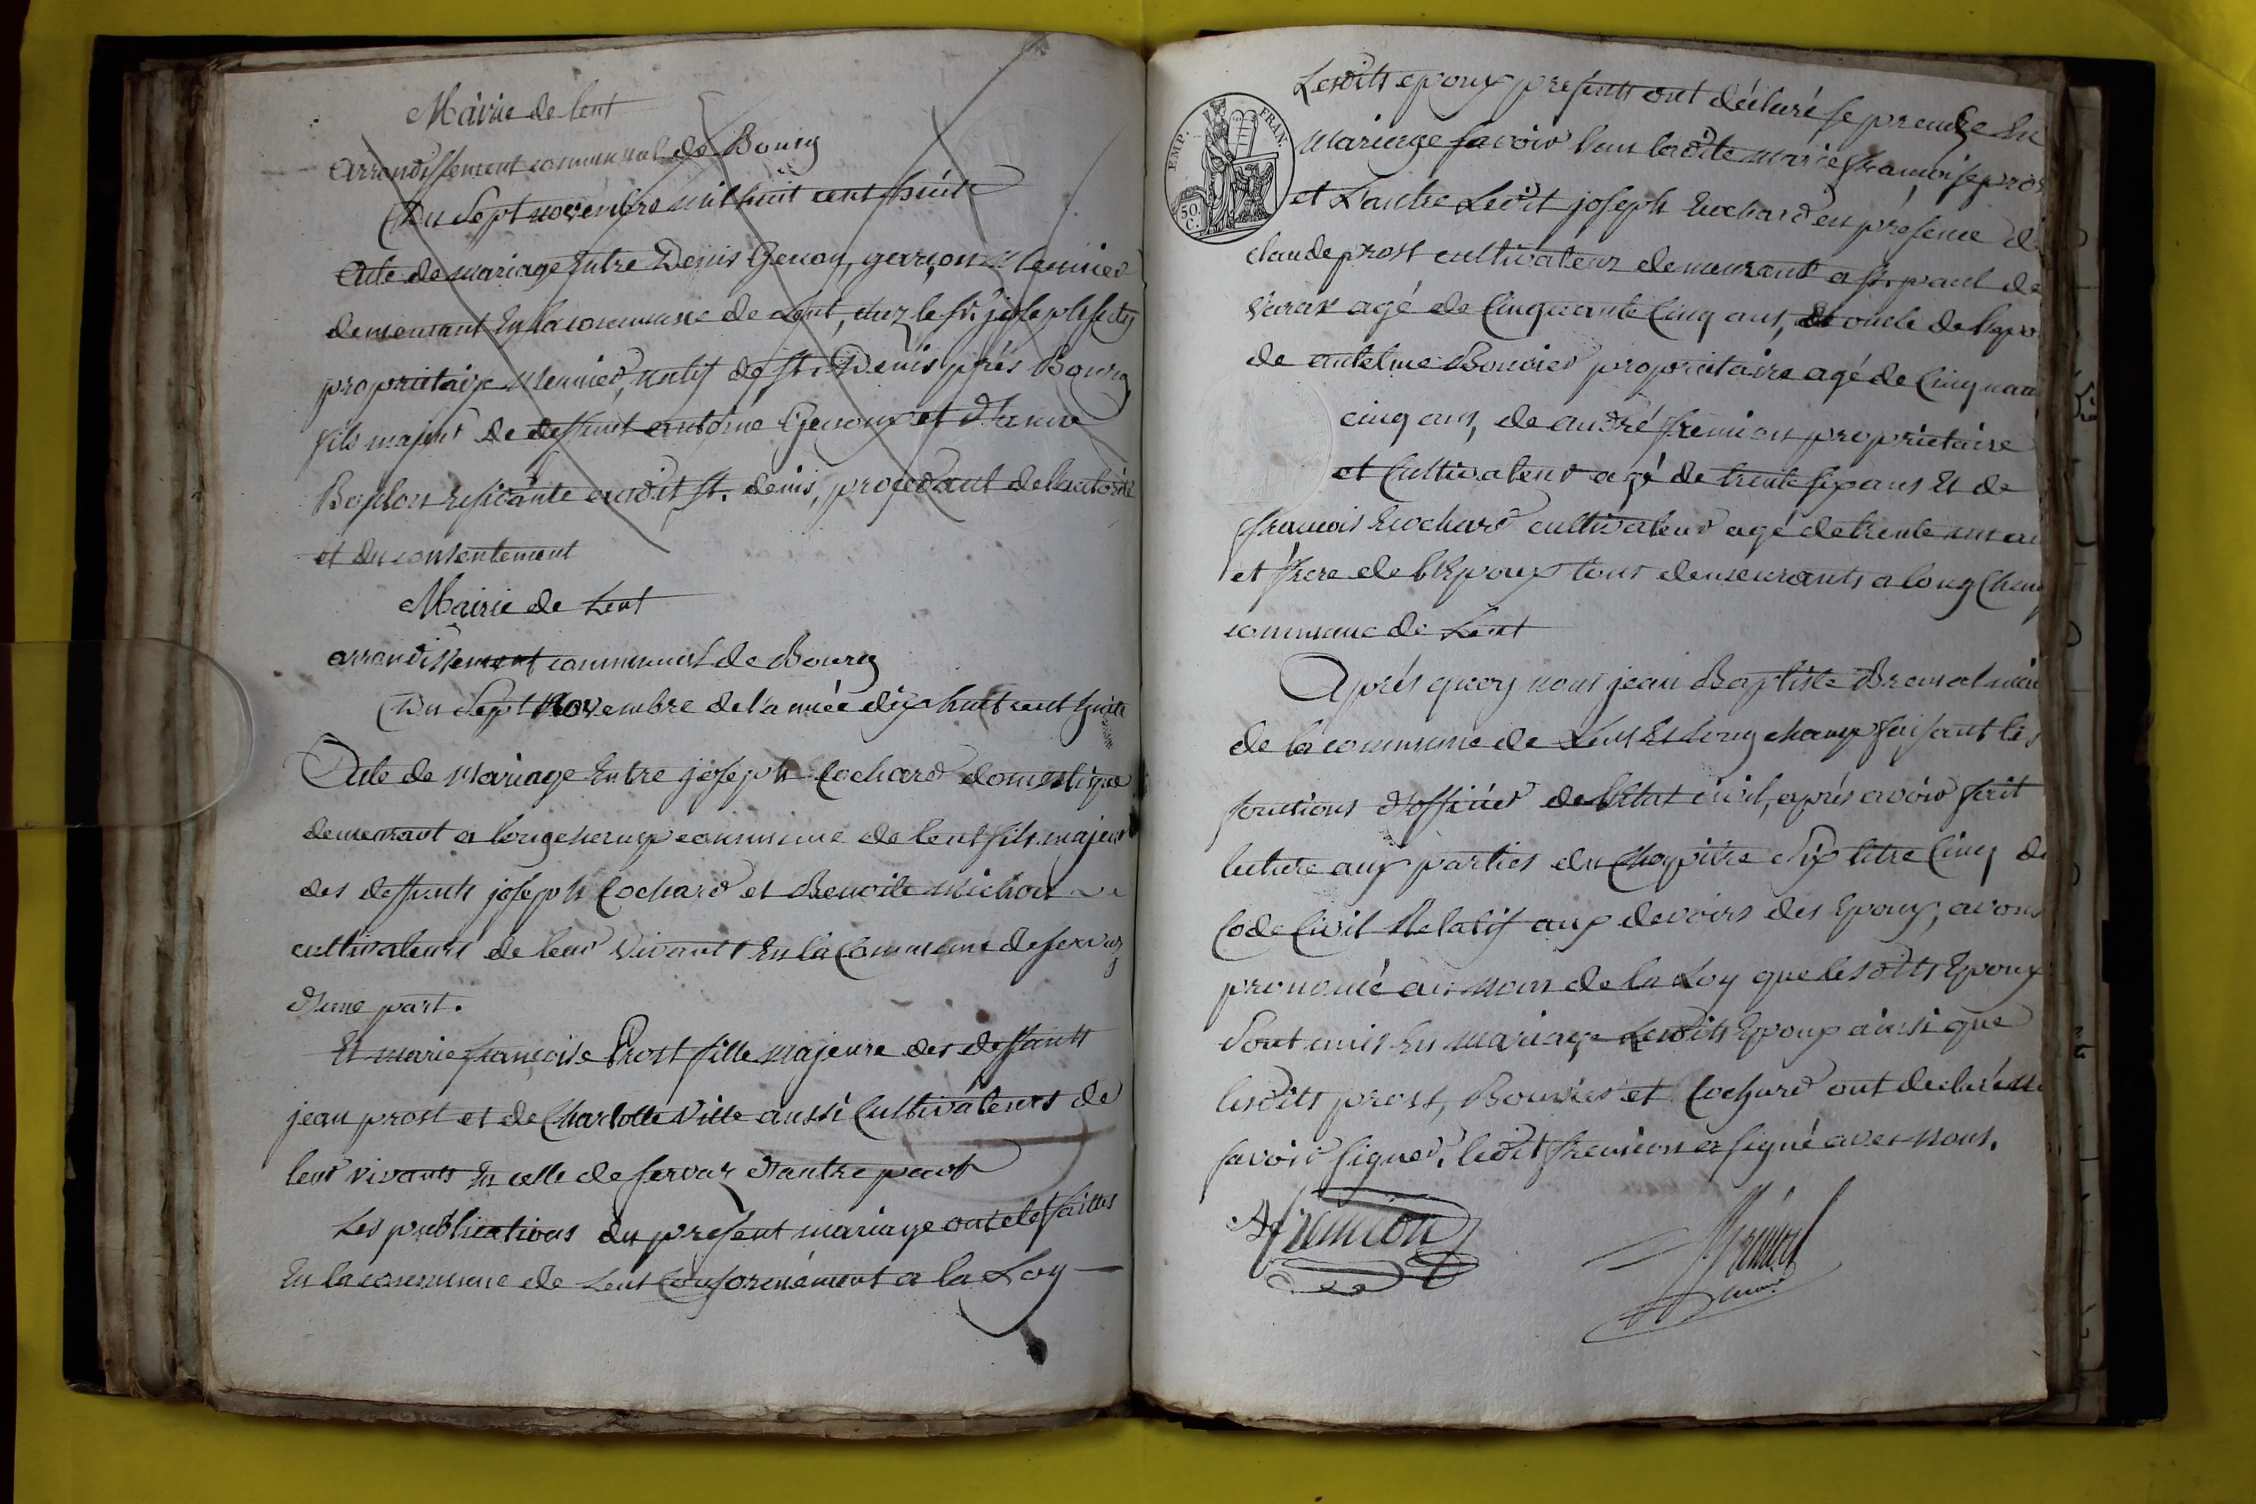 Mairie de lent
arrondissement communal de Bourg
Du Sept novembre mil huit cent huit
Acte de mariage Entre Denis Genou, garçon Meunier
demeurant En la commune de Lent, chez le sr. joseph
propriétaire Meunier, natif de St. Denis près Bourg
fils majeur de deffunt antoine Genoux et d'anne
résidante audit St. denis, procédant de l'autorité
et du consentement
Mairie de Lent
arrondissement communal de Bourg
Du Sept Novembre de l'année dix huit cent huit
Acte de Mariage Entre joseph Cochard domestique
demeurant a longchamp commune de lent fils majeur
des deffunts joseph Cochard et Benoite Michon
cultivateurs de leur vivant En la Commune de servas
d'une part.
Et marie françoise Prost fille majeure des deffunts
jean prost et de Charlotte Ville aussi Cultivateurs de
leur vivants En celle de servas d'autre part
Les publications du présent mariage ont eté faittes
En la commune de Lent Conformément a la Loy
EMP. FRAN.
50 C.
Lesdits epoux présents ont déclaré se prendre En
Mariage savoir l'un ladite marie françoise pros
et L'autre Ledit joseph Cochard en présence de
claude prost cultivateur demeurant a st. paul de
Varax agé de Cinquante Cinq ans, oncle de l'epo
de antelme Bouvier propriétaire agé de Cinquan
cinq ans, de andré fremion propriétaire
et Cultivateur agé de trente six ans Et de
françois Cochard cultivateur agé de trente un an
et frere de l'Epoux tous demeurants a long Cham
commune de Lent
Après quoy nous jean Baptiste mair
de la commune de Lent Et Longchamp faisant les
fonctions d'officier de l'Etat civil, après avoir fait
lecture aux parties du Chapitre Six titre Cinq du
Code Civil Relatif aux devoirs des Epoux, avons
prononcé au nom de la Loy que lesdits Epoux
Sont unis En mariage Lesdits Epoux ainsi que
lesdits prost, Bouvier et Cochard ont declaré ne
savoir signer. ledit fremion a signé avec nous.
A fremion